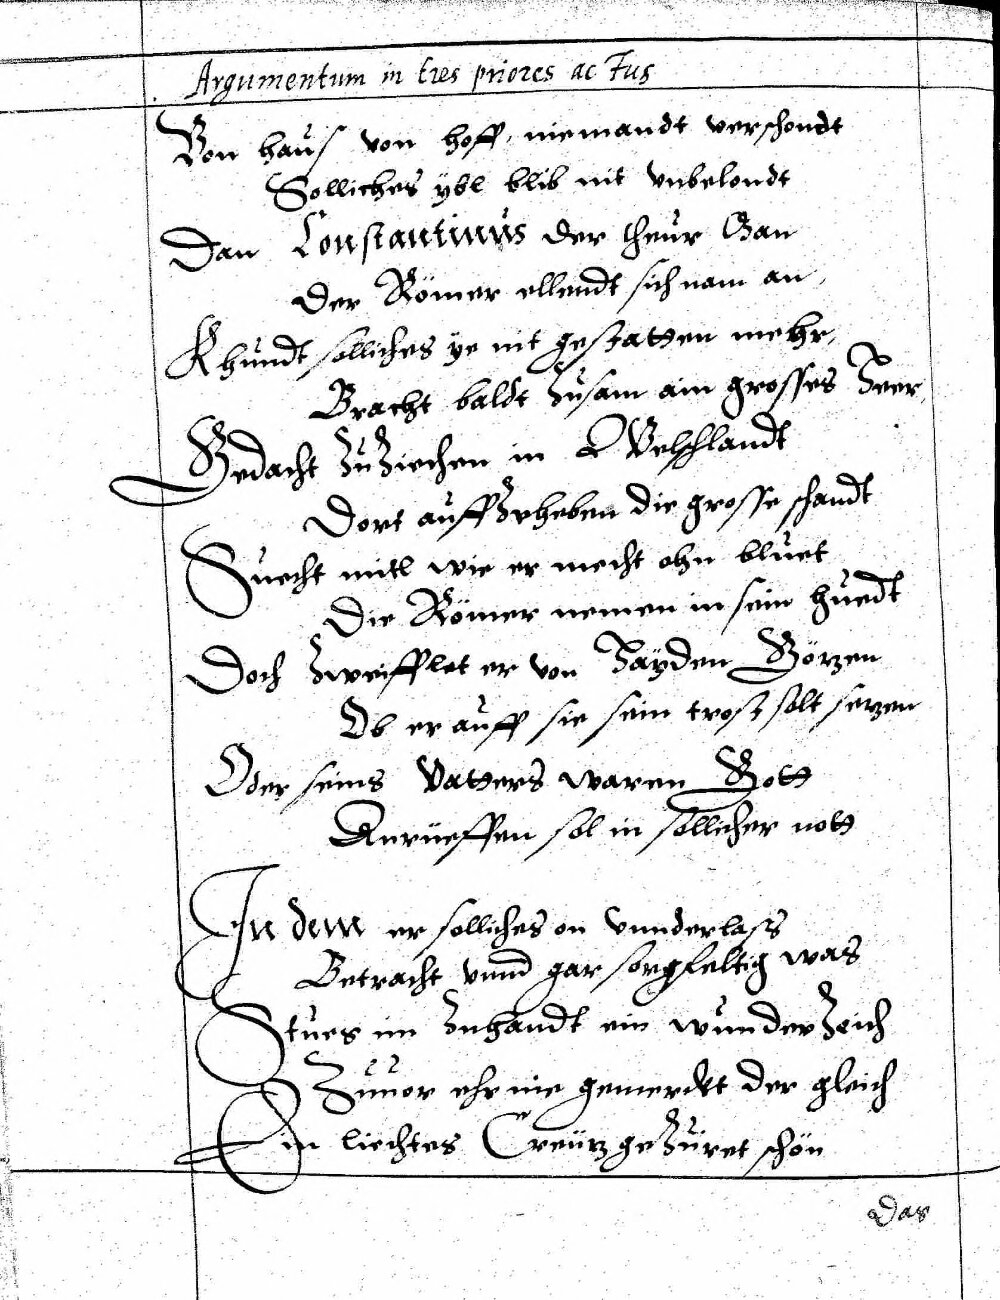 Argumentum in tres priores actus
Von hauß von hoff, niemandt verschondt
Solliches ybl blib nit vnbelondt
Dan Constantinus der theur Man
Der Römer ellendt sich nam an,
Khundt solliches ye nit gestatten mehr,
Bracht baldt zusam ain grosses Heer,
Gedacht zuziechen in Welschlandt
Dort auffzuheben die grosse schandt
Suecht mitl wie er mecht ohn bluet
Die Römer nemen in sein huedt
Doch zweifflet er von Hayden Görzen
Ob er auff sie sein trost solt sezen
Oder seins Vatters waren Gott
Anrüeffen sol in sollicher nott
In dem er solliches on vnnderlass
Betracht vnnd gar sorgfeltig was
Stues im zuhandt ein wunder zeich
Zuuor ehr nie gemerckt der gleich
Ein liechtes Creüz gezüret schön
Das